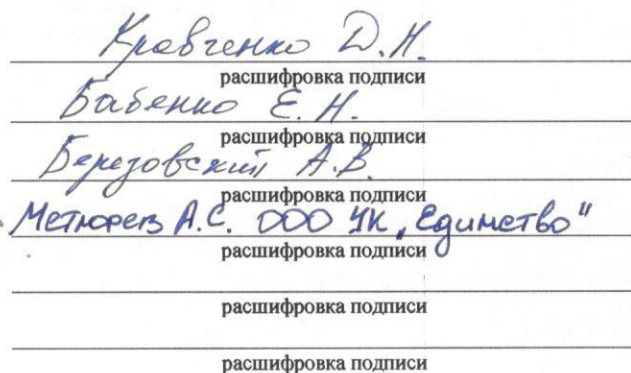 Кравченко Д.Н.
расшифровка подписи
Бабенко Е.Н.
расшифровка подписи
Березовский А.В.
расшифровка подписи
А.С. ООО УК „Единство"
расшифровка подписи
расшифровка подписи
расшифровка подписи